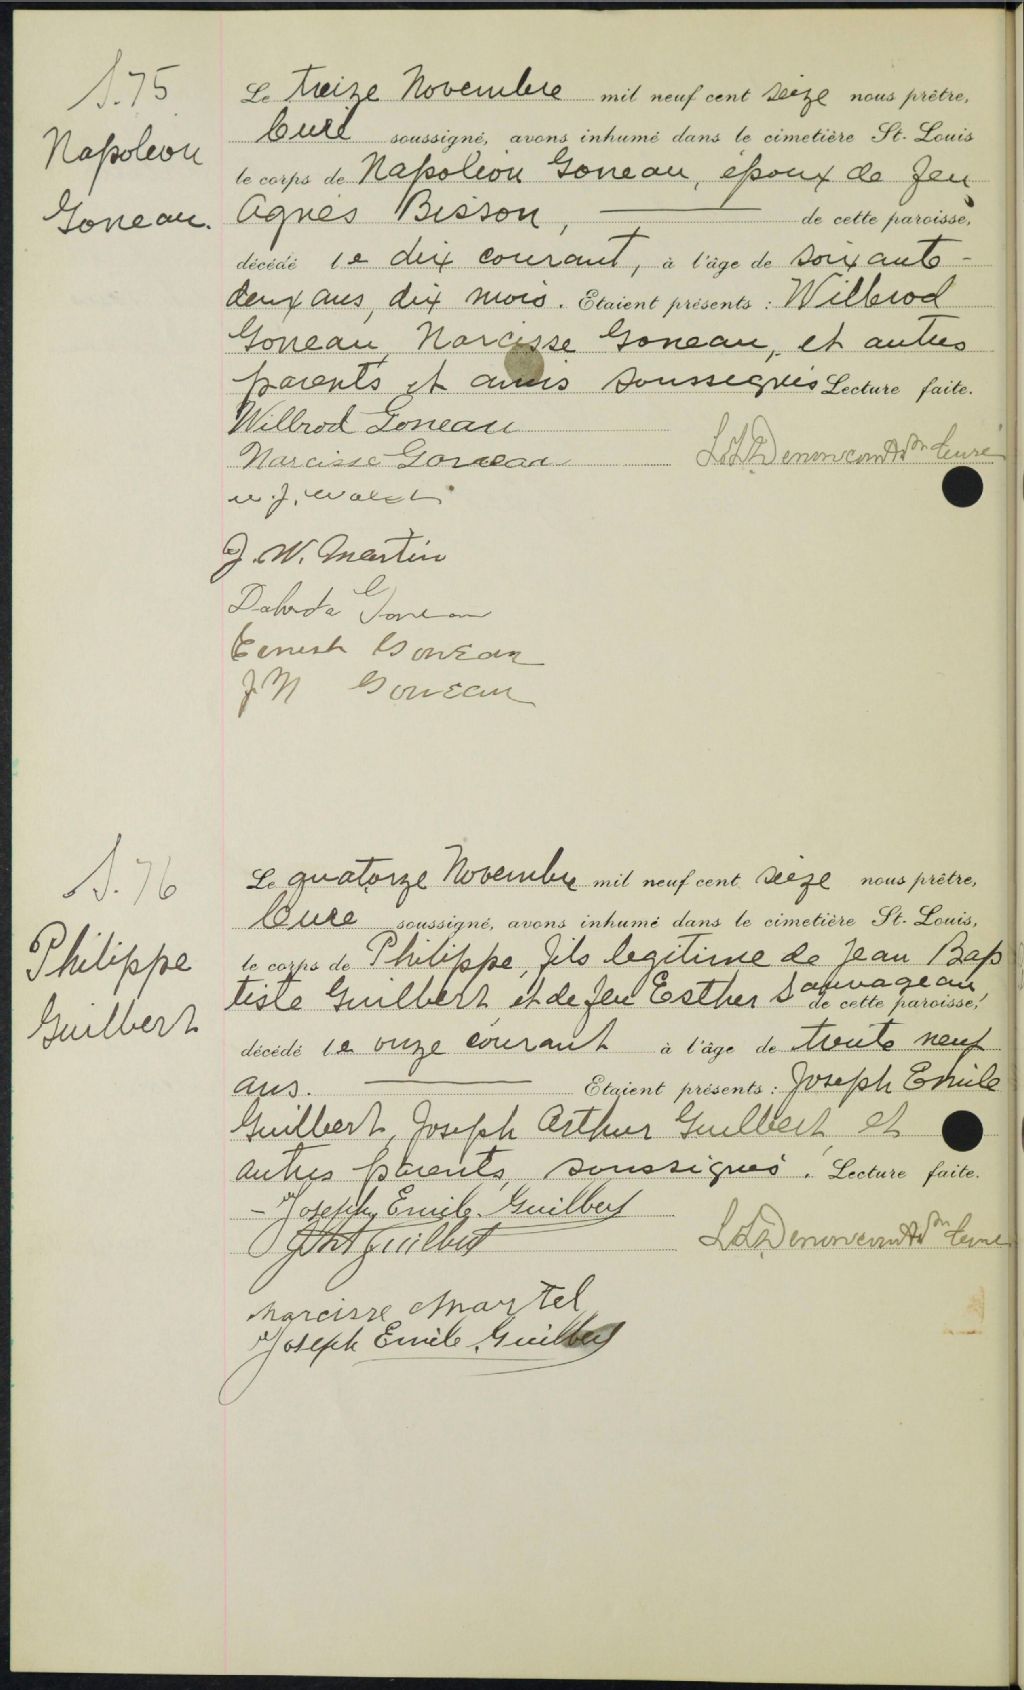 S. 75
Napoléon
Goneau.
Le treize Novembre mil neuf cent seize nous prêtre,
Curé soussigné, avons inhumé dans le cimetière St-Louis
le corps de Napoléon Goneau, époux de feu
Agnès Bisson, de cette paroisse,
décédé le dix courant, à l'âge de soixante-
deux ans, dix mois. Etaient présents : Wilbrod
Goneau, Narcisse Goneau, et autres
parents et amis soussignés Lecture faite.
Wilbrod Goneau
Narcisse Goneau
Denoncourt Ptre Curé
J. W. Martin
Goneau
Ernest Goneau
J N Goneau
S. 76
Philippe
Guilbert
Le quatorze Novembre mil neuf cent seize nous prêtre,
Curé soussigné, avons inhumé dans le cimetière St-Louis,
le corps de Philippe, fils legitime de Jean Bap
tiste Guilbert, et de feu Esther Sauvageau, de cette paroisse,
décédé le onze courant à l'âge de trente neuf
ans. Etaient présents : Joseph Emile
Guilbert, Joseph Arthur Guilbert, et
autres parents, soussignés. Lecture faite.
Joseph Emile Guilbert
Guilbert
Denoncourt Ptre Curé
Narcisse Martel
Joseph Emile Guilbert